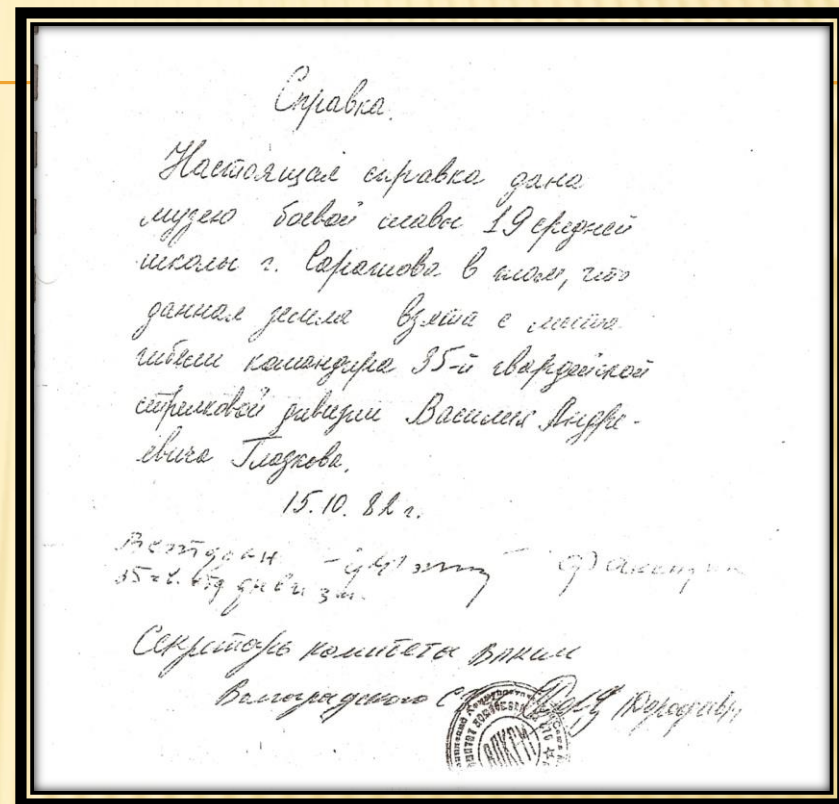 Справка.
Настоящая справка дана
музею боевой славы 19 средней
школы г. Саратова в том, что
данная земля взята с места
гибели командира 35-й гвардейской
стрелковой дивизии Василия Андре-
евича Глазкова.
15.10.82 г.
Ветеран
35
Секретарь комитета ВЛКСМ
Волгоградского